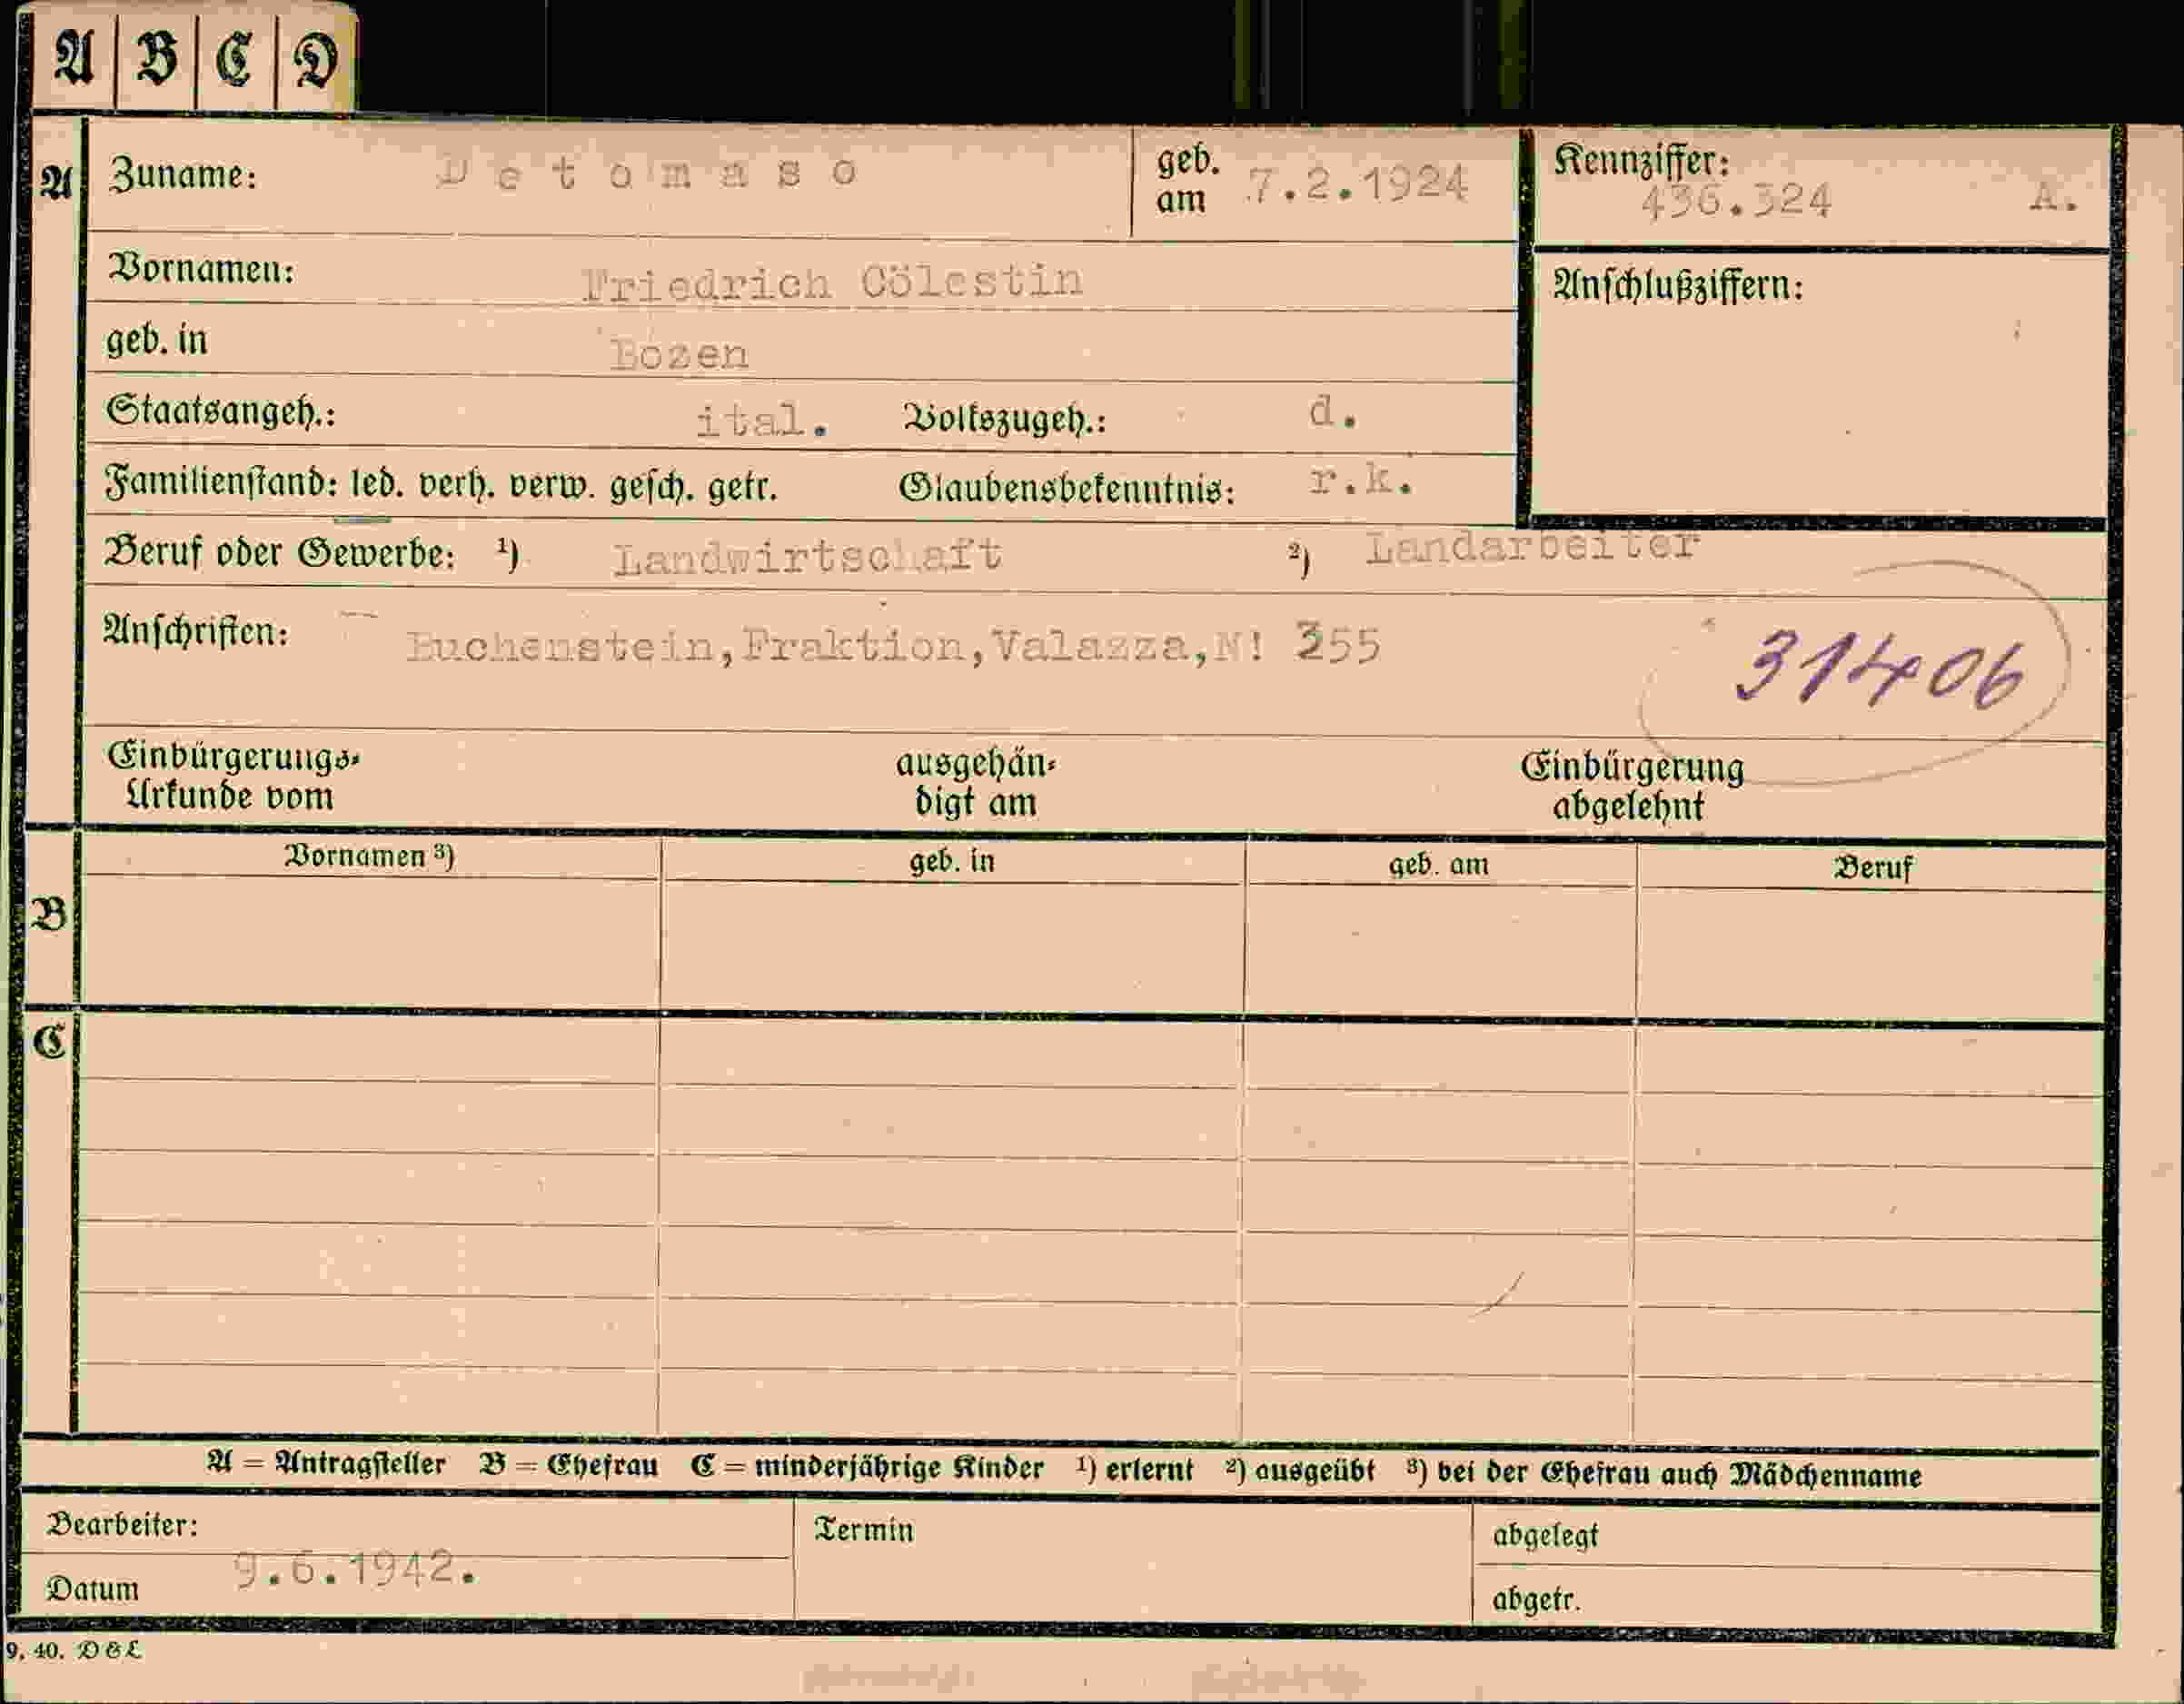 A B C D
A Zuname: Detomaso geb. am 7.2.1924 Kennziffer: 436.324 A.
Vornamen: Friedrich Cölestin Anschlußziffern:
geb. in Bozen
Staatsangeh.: ital. Volkszugeh.: d.
Familienstand: led. verh. verw. gesch. getr. Glaubensbekenntnis: r.k.
Beruf oder Gewerbe: ¹) Landwirtschaft ²) Landarbeiter
Anschriften: Buchenstein,Fraktion,Valazza,N! 355
31406
Einbürgerungs- Urkunde vom ausgehän- digt am Einbürgerung abgelehnt
Vornamen ³) geb. in geb. am Beruf
B
C
A = Antragsteller B = Ehefrau C = minderjährige Kinder ¹) erlernt ²) ausgeübt ³) bei der Ehefrau auch Mädchenname
Bearbeiter: Termin abgelegt
Datum 9.6.1942. abgetr.
9. 40. D & L